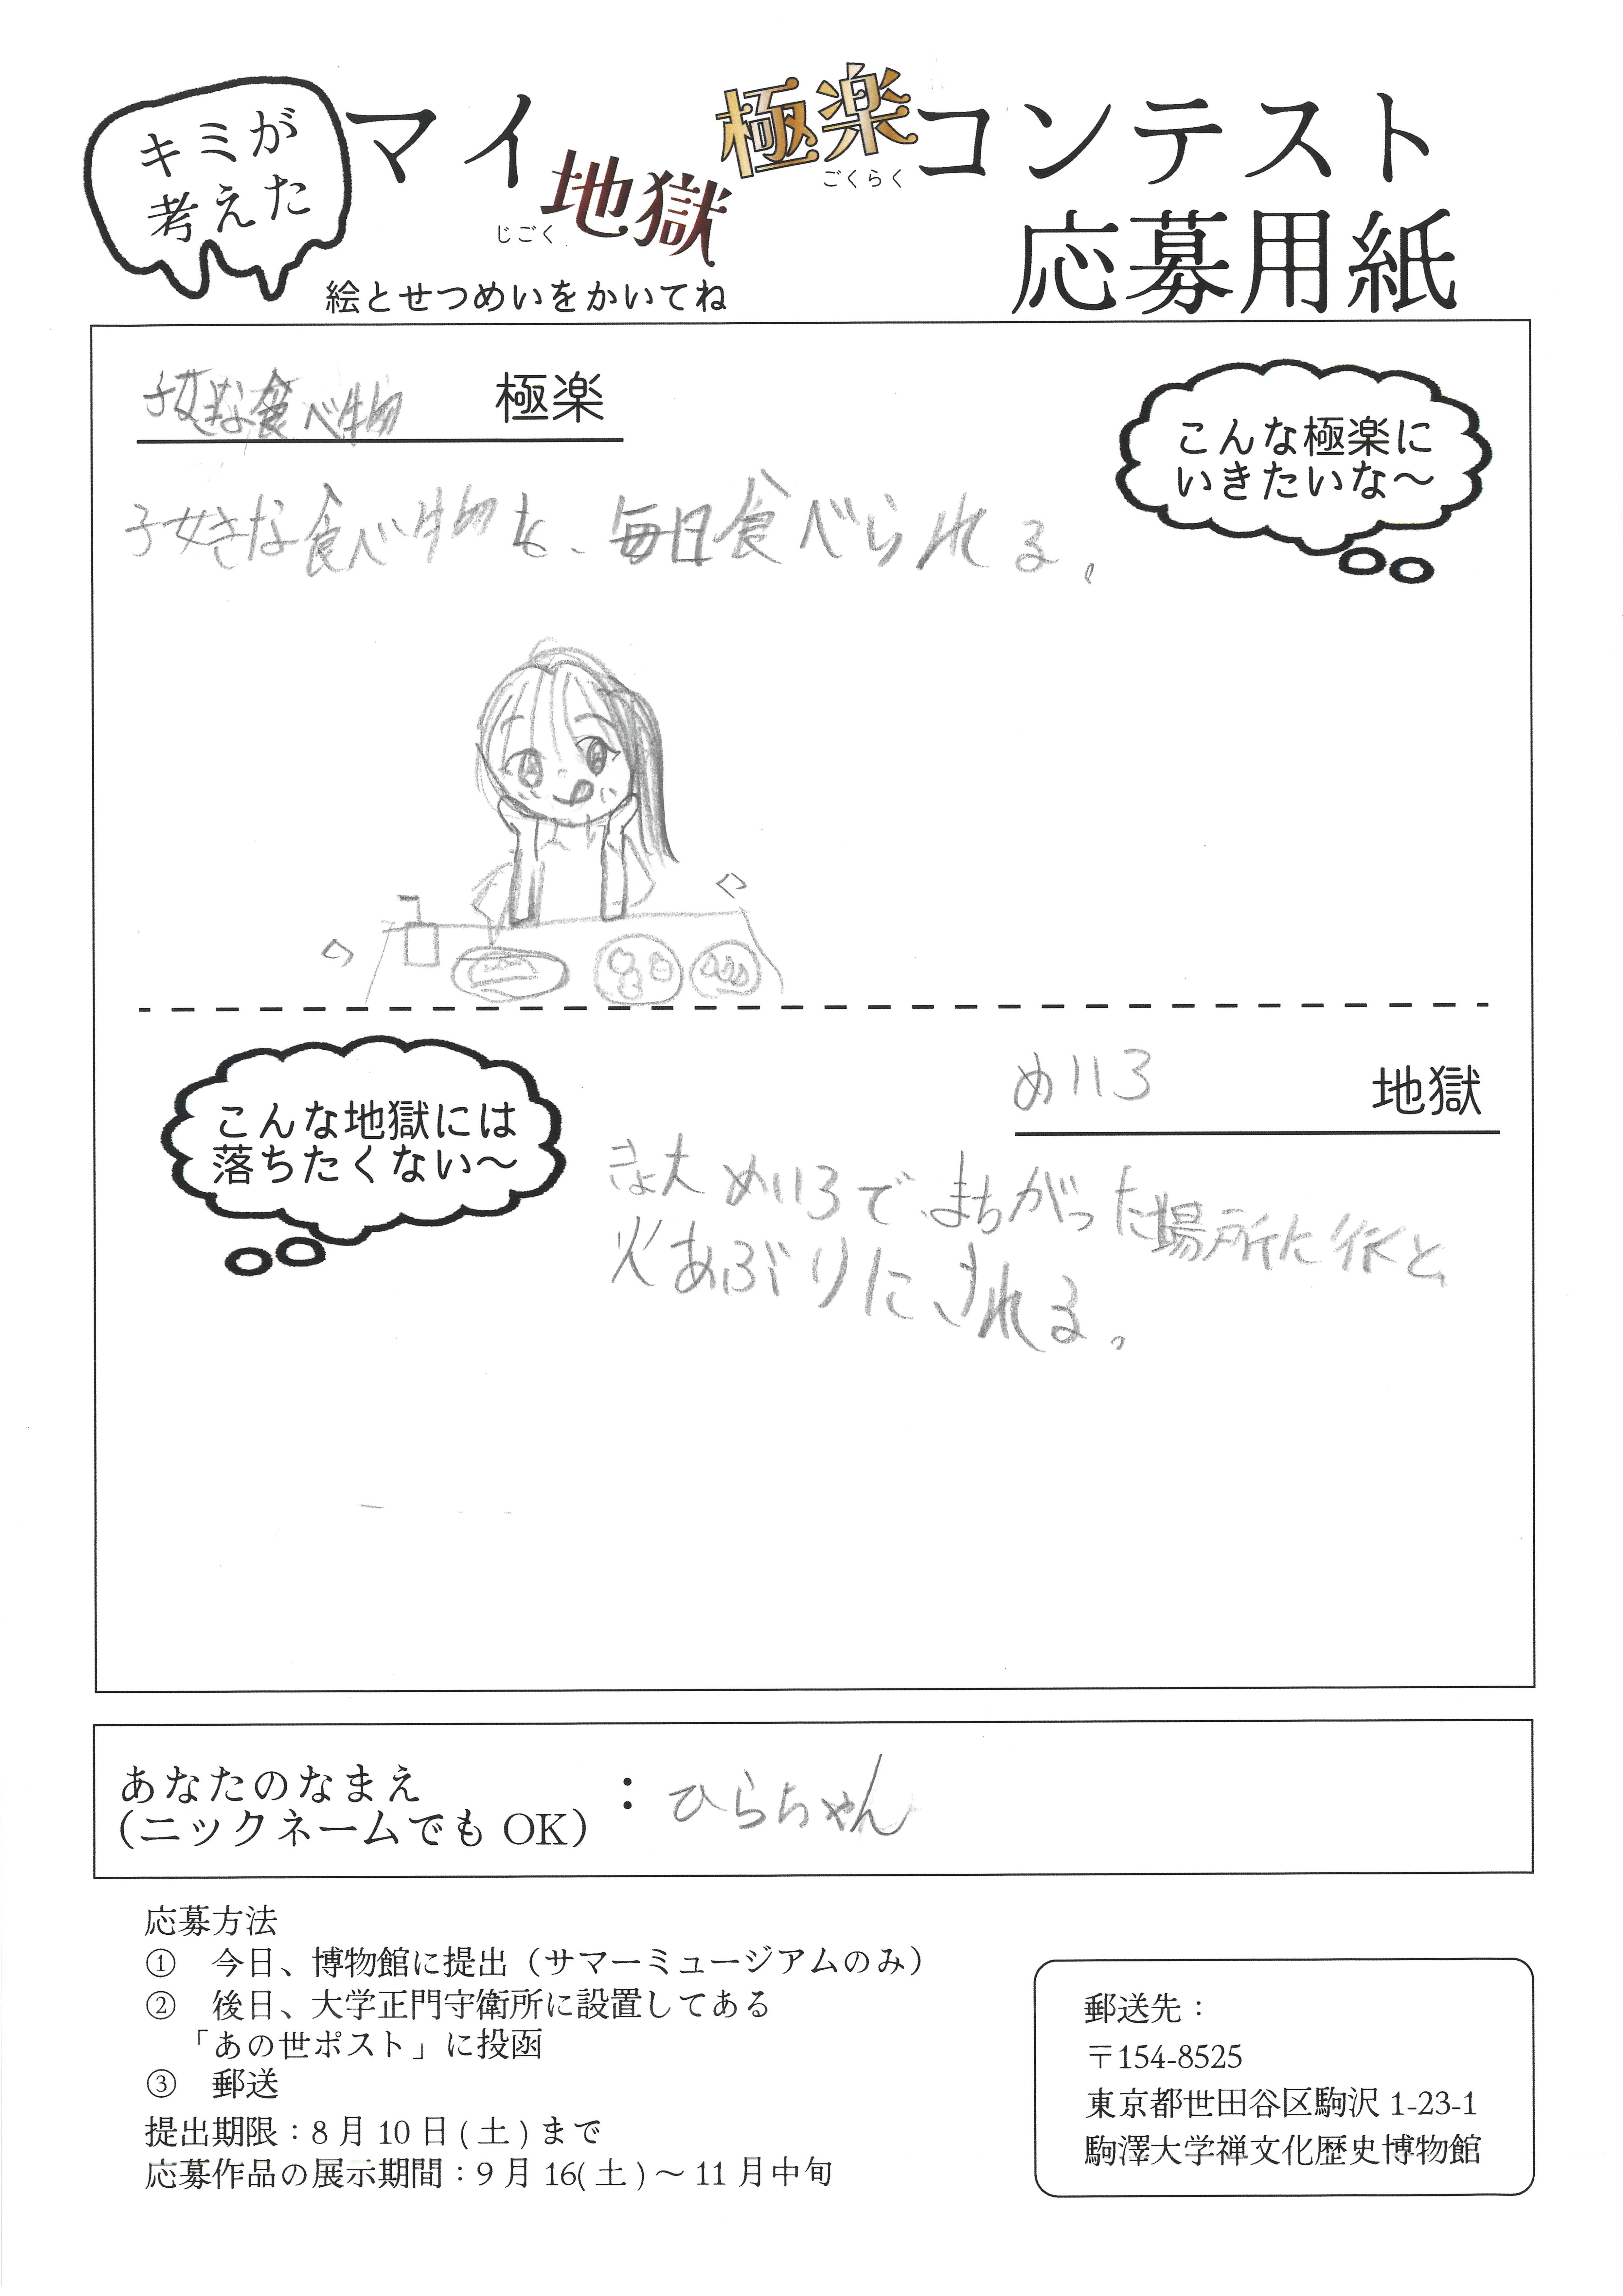 キミが
考えた
マイ地獄極楽コンテスト
じごく
ごくらく
応募用紙
絵とせつめいをかいてね
子好きな食べ物 極楽
こんな極楽に
いきたいな〜
子好きな食べ物を、毎日食べられる。
こんな地獄には
落ちたくない〜
めいろ 地獄
きょ大めいろで、まちがった場所に行くと、
火あぶりにされる。
あなたのなまえ
（ニックネームでも OK）
：ひらちゃん
応募方法
① 今日、博物館に提出（サマーミュージアムのみ）
② 後日、大学正門守衛所に設置してある
「あの世ポスト」に投函
③ 郵送
提出期限：8 月 10 日 ( 土 ) まで
応募作品の展示期間：9 月 16( 土 ) 〜 11 月中旬
郵送先：
〒154-8525
東京都世田谷区駒沢 1-23-1
駒澤大学禅文化歴史博物館